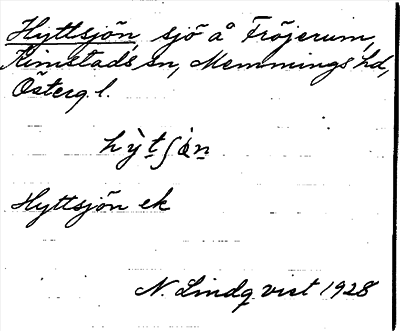 Hyttsjön, sjö å Fröjerum,
Kimstads sn, Memmings hd,
Österg l.
hỳtʃön
Hyttsjön ek
N. Lindqvist 1928